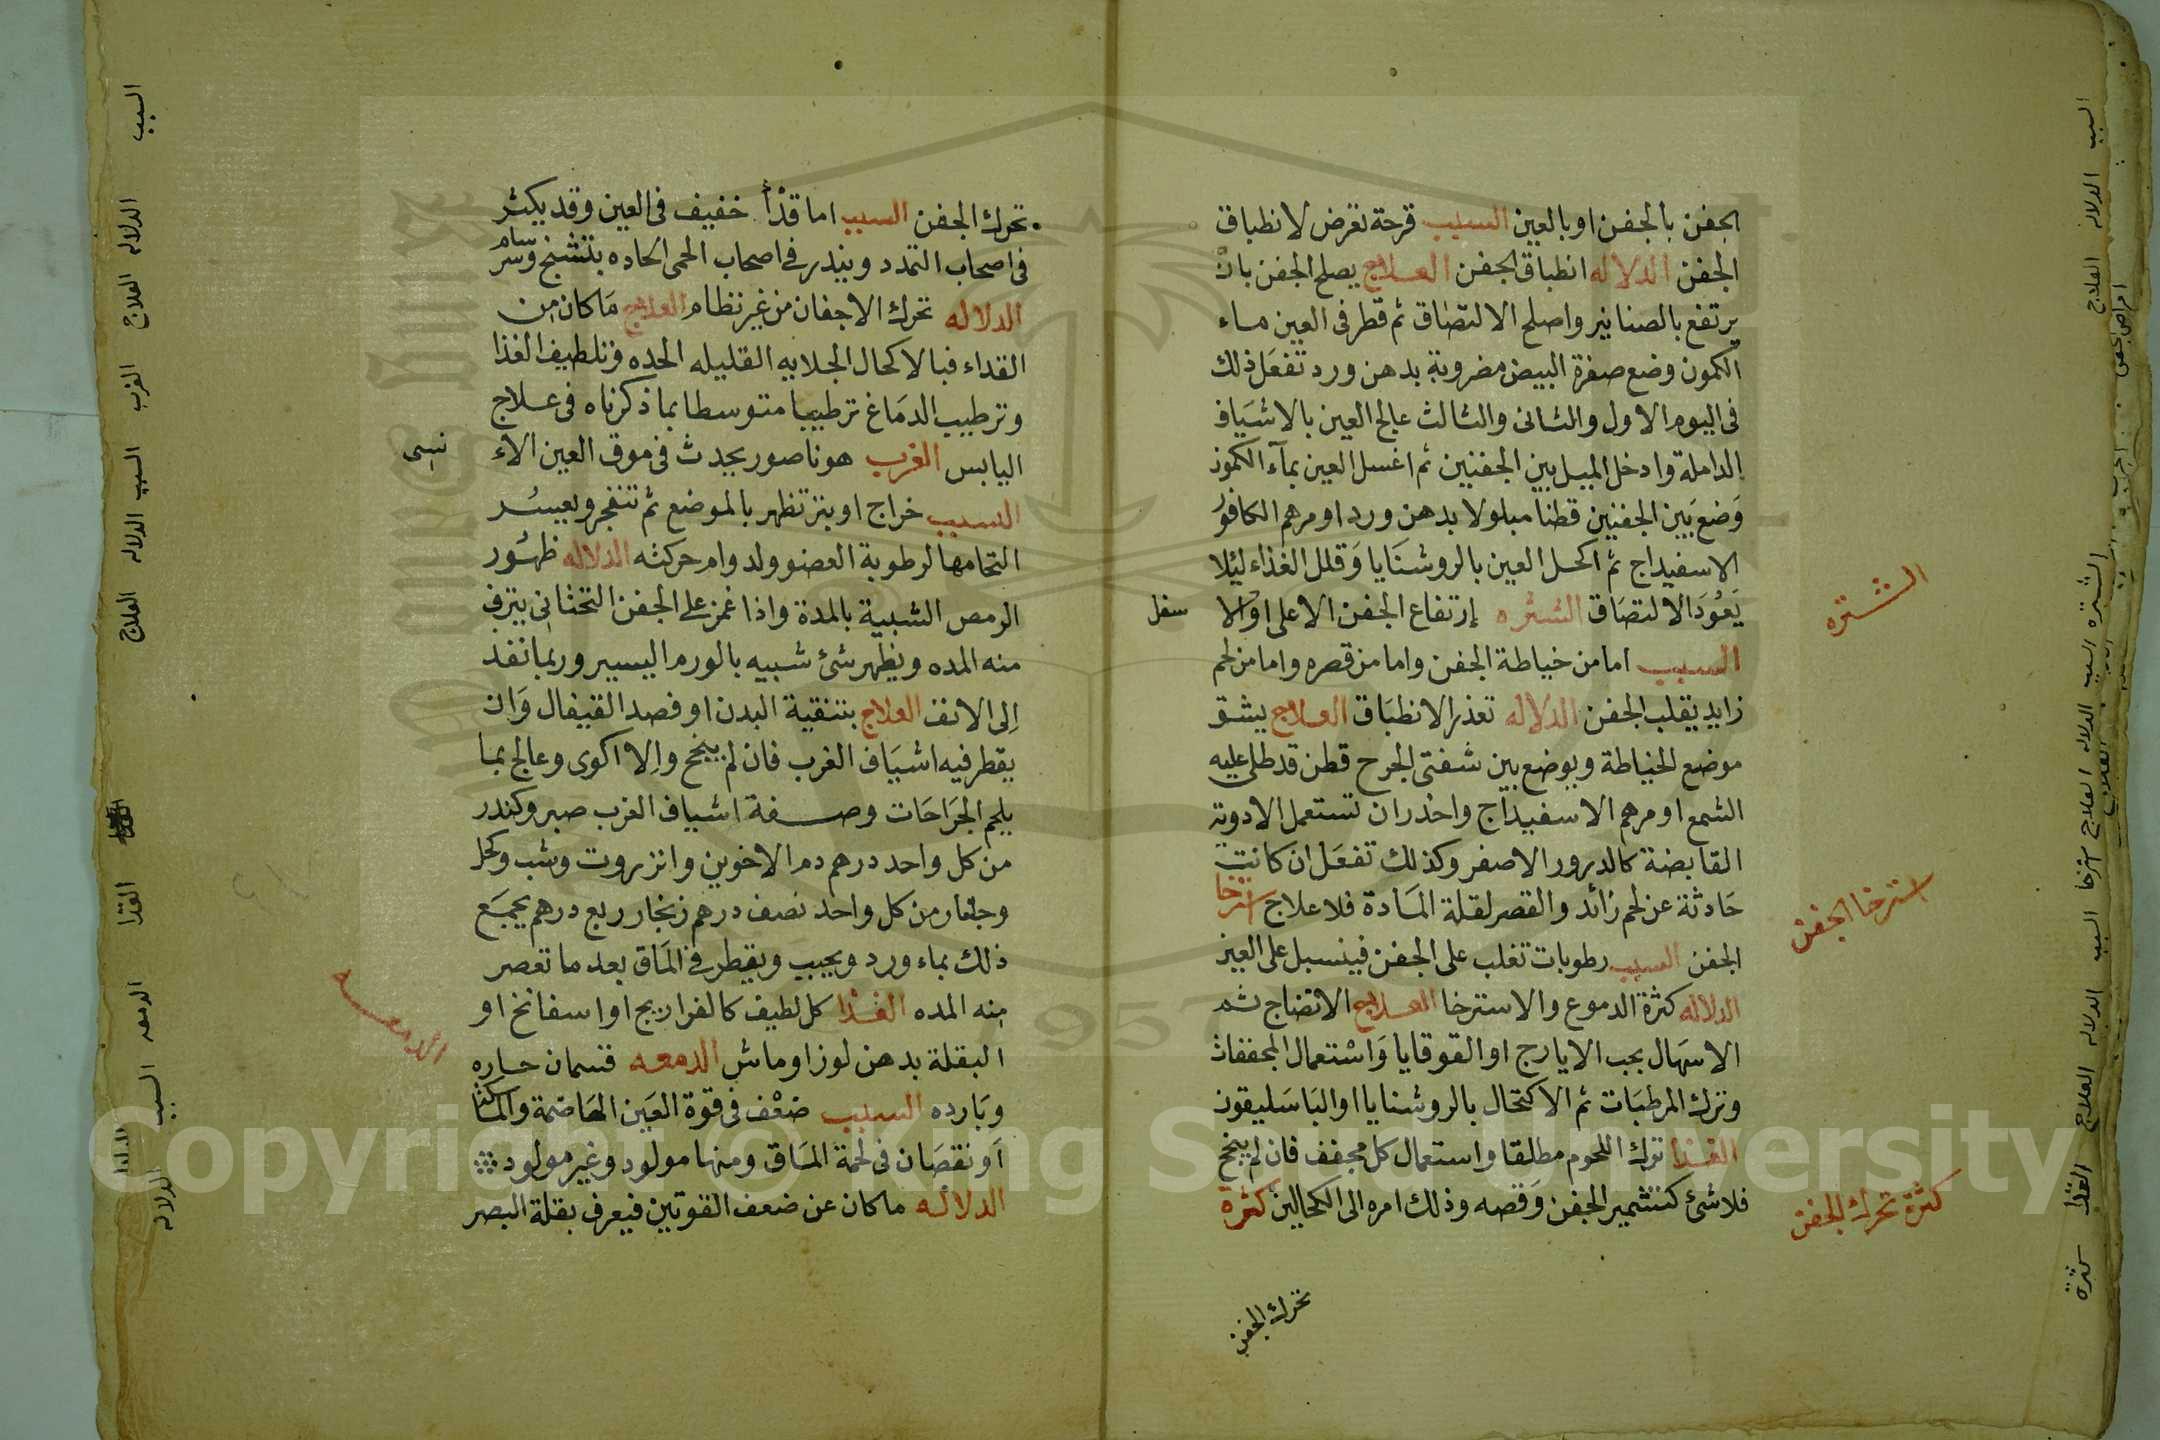 الجفن بالجفن او بالعين السبب قرحة تعرض لانطباق
الجفن الدلاله انطباق الجفن العلاج يصلح الجفن بان
يرتفع بالصنانير واصلح الالتصاق ثم قطر في العين ماء
الكمون وضع صفرة البيض مضروبة بدهن ورد تفعل ذلك
في اليوم الاول والثاني والثالث عالج العين بالاشياف
الداملة وادخل الميل بين الجفنين ثم اغسل العين بماء الكمون
وضع بين الجفنين قطنا مبلولا بدهن ورد او مرهم الكافور
الاسفيداج ثم اكحل العين بالروشنايا وقلل الغذاء ليلا
يعود الالتصاق الشتره إرتفاع الجفن الاعلى او الا
سفل
السبب اما من خياطة الجفن واما من قصره واما من لحم
زايد يقلب الجفن الدلاله تعذر الانطباق العلاج يشق
موضع الخياطة ويوضع بين شفتي الجرح قطن قد طلى عليه
الشمع او مرهم الاسفيداج واحذر ان تستعمل الادوية
القابضة كالدرور الاصفر وكذلك تفعل ان كانت
حادثة عن لحم زائد والقصر لقلة المادة فلا علاج استرخا
الجفن السبب رطوبات تغلب على الجفن فينسبل على العين
الدلاله كثرة الدموع والاسترخا العلاج الانضاج ثم
الاسهال بحب الايارج او القوقايا واستعمال المجففات
وترك المرطبات ثم الاكتحال بالروشنايا او الباسليقون
الغذا ترك اللحوم مطلقا واستعمال كل مجفف فان لم ينجح
فلا شئ كتشمير الجفن وقصه وذلك امره الى الكحالين كثرة
تحرك الجفن
الشتره
استرخا الجفن
كثرة تحرك الجفن
السبب الدلاله العلاج
الشتره السبب الدلاله العلاج استرخا السبب الدلاله العلاج الغذا كثرة
تحرك الجفن السبب اما قذأ خفيف في العين وقد يكثر
في اصحاب التمدد وينذر في اصحاب الحمى الحاده بتشنج وسرسام
الدلاله تحرك الاجفان من غير نظام العلاج ما كان من
القداء فبالاكحال الجلاية القليله الحده وتلطيف الغذا
وترطيب الدماغ ترطيبا متوسطا بما ذكرناه في علاج
اليابس الغرب هو ناصور يحدث في موق العين الاء
نسى
السبب خراج او بتر تظهر بالموضع ثم تنفجر ويعسر
التحامها لرطوبة العضو ولدوام حركته الدلاله ظهور
الرمص الشبية بالمدة واذا غمز على الجفن التحتانى يترف
منه المده ويظهر شئ شبيه بالورم اليسير وربما نفذ
إلى الانف العلاج بتنقية البدن او فصد القيفال وان
يقطر فيه اشياف الغرب فان لم ينجح وإلا اكوى وعالج بما
يلحم الجراحات وصفة اشياف الغرب صبر وكندر
من كل واحد درهم دم الاخوين وانزروت وشب وكحل
وجلنار من كل واحد نصف درهم زنجار ربع درهم يجمع
ذلك بماء ورد ويحبب ويقطر في الماق بعد ما تعصر
منه المده الغذا كل لطيف كالفراريج او اسفانخ او
البقلة بدهن لوز او ماش الدمعه قسمان حاره
وبارده السبب ضعف في قوة العين الهاضمة والماسكة
أو نقصان في لحمة الماق ومنها مولود وغير مولود
الدلاله ما كان عن ضعف القوتين فيعرف بقلة البصر
الدمعه
السبب الدلاله العلاج الغرب السبب الدلاله العلاج
الغذا الدمعه السبب الدلاله
957
Copyright © King Saud University